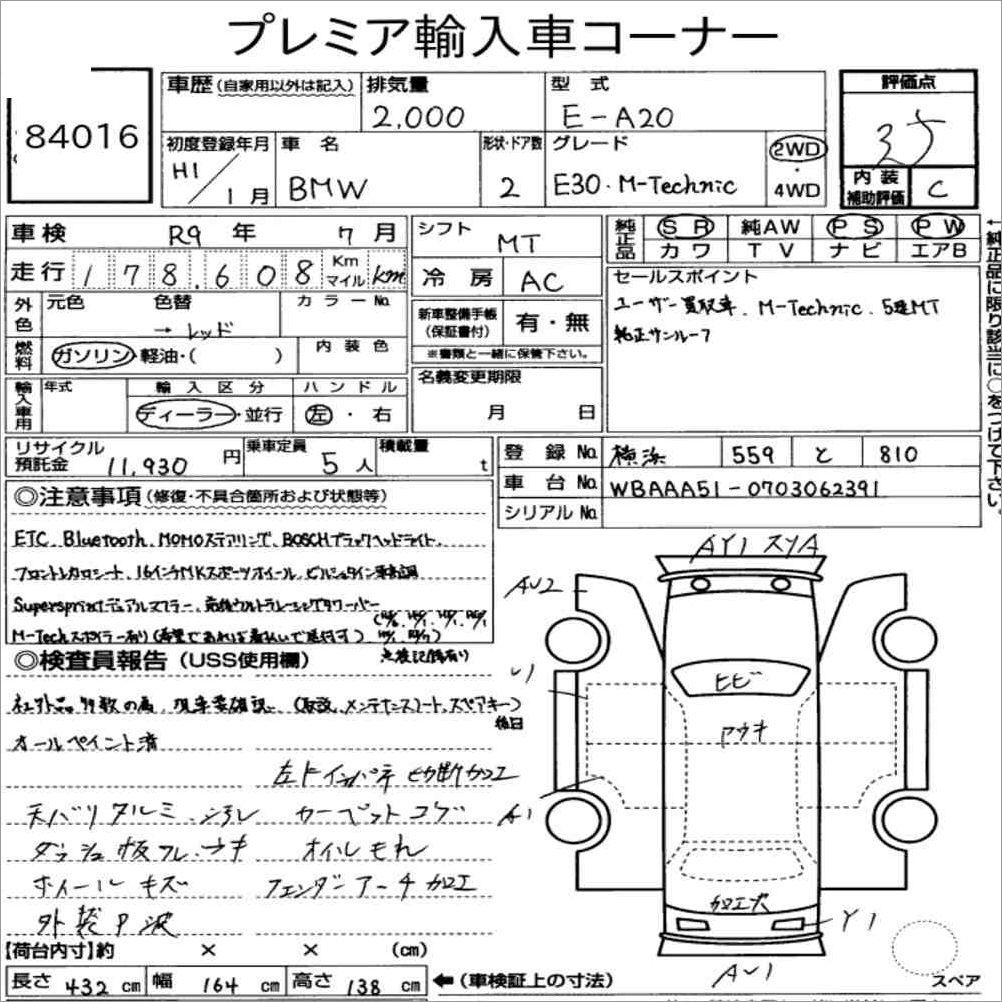 プレミア輸入車コーナー
84016
車歴 (自家用以外は記入) 排気量 型式 評価点
2,000 E-A20 35
初度登録年月 車名 形状・ドア数 グレード 2WD・4WD
H1/1月 BMW 2 E30・M-Technic
内装補助評価 C
車検 R9年 7月 シフト MT
純正品 SR 純AW PS PW
カワ TV ナビ エアB
走行 178,608 Km マイル km 冷房 AC
セールスポイント
ユーザー買取車. M-Technic. 5速MT
純正サンルーフ
外色 元色 色替 カラーNo.
→ レッド
新車整備手帳 (保証書付) 有・無
※書類と一緒に保管下さい。
燃料 ガソリン・軽油・( ) 内装色
名義変更期限
月 日
輸入車用 年式 輸入区分 ハンドル
ディーラー・並行 左・右
←純正品に限り該当に○をつけて下さい。
リサイクル預託金 11,930円 乗車定員 5人 積載量 t
登録No. 横浜 559 と 810
車台No. WBAAA51-0703062391
シリアルNo.
◎注意事項 (修復・不具合箇所および状態等)
ETC. Bluetooth. MOMOステアリング. BOSCHブラックヘッドライト.
フロントレカロシート. 16インチMKスポーツホイール. ビルシュタイン車高調
Supersprintデュアルマフラー.
M-Techスポイラー有り(希望であれば着払いで送付す)
点検記録有り
◎検査員報告 (USS使用欄)
社外品多数の為. 現車要確認. (取説. メンテナンスノート. スペアキー)
後日
オールペイント済
左ドインパネ 切断加工
天バリタルミ. カーペットコゲ
ダッシュ板フレ.ウキ オイルもれ
ホイールキズ フェンダーアーチ加工
外装P波
【荷台内寸】約 × × (cm)
長さ 432 cm 幅 164 cm 高さ 138 cm ←(車検証上の寸法)
AY1 スリA
AU2
ヒビ
Pウキ
A1
加工大
Y1
AU1
スペア